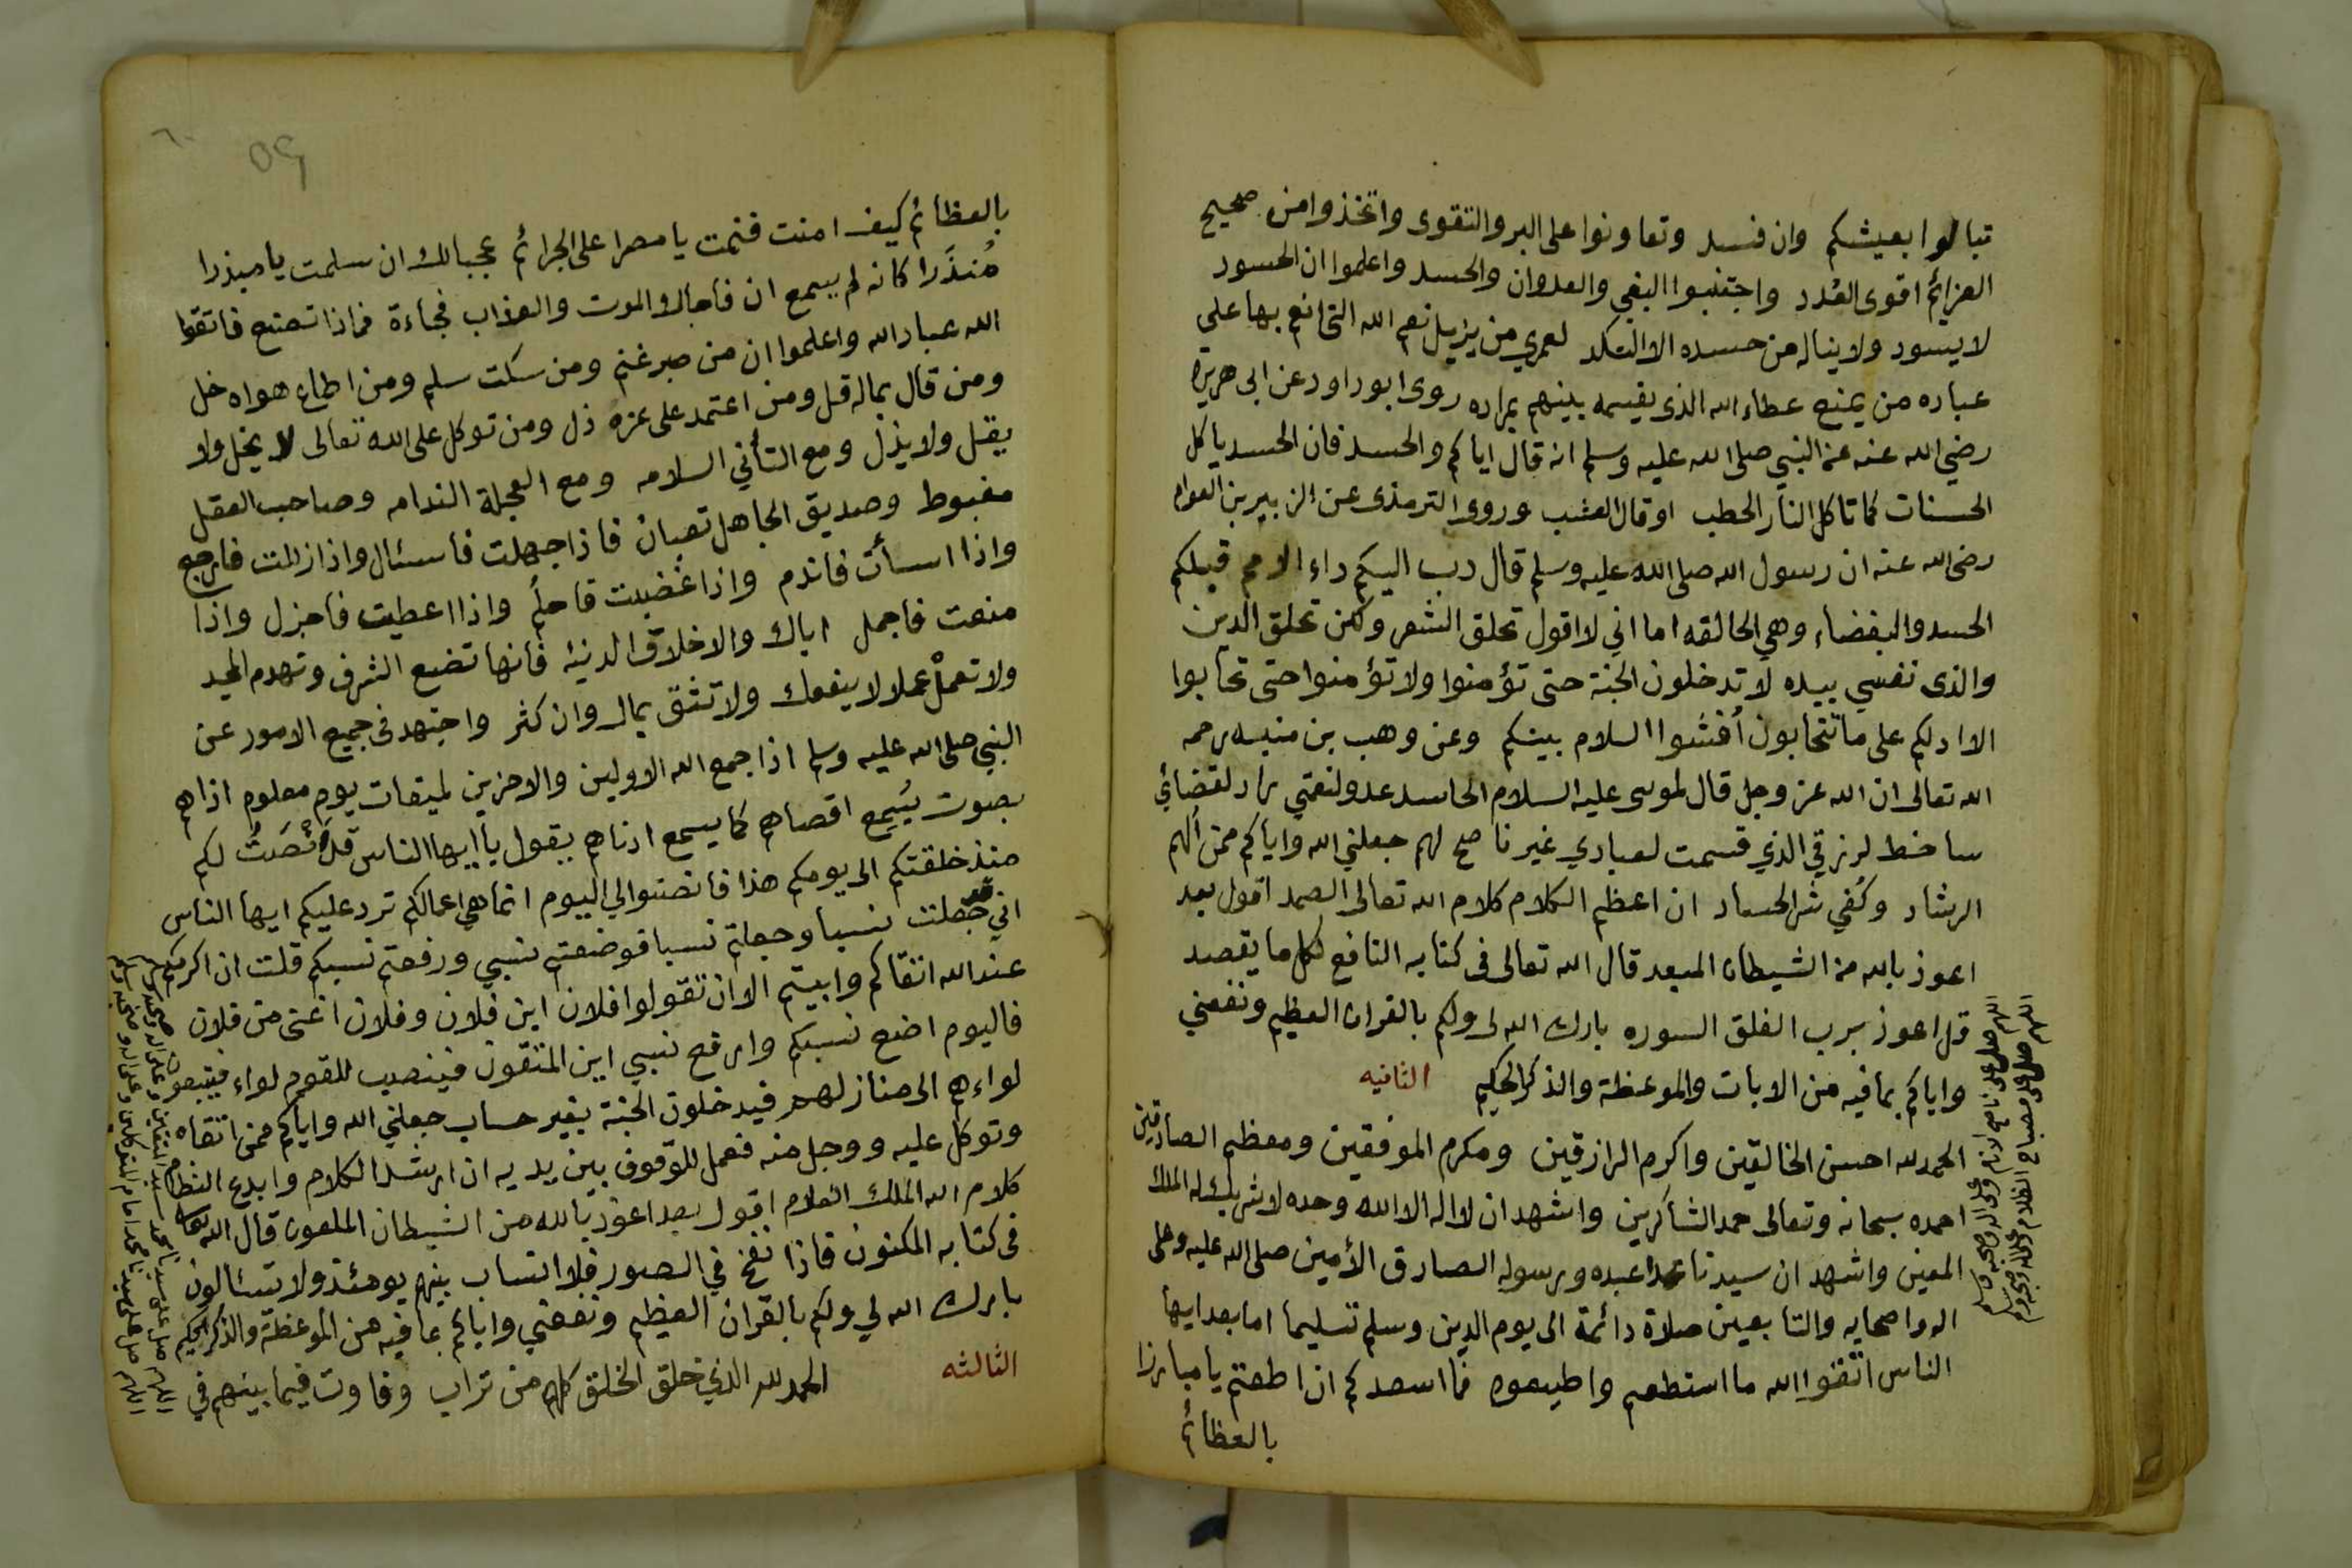 تبالوا بعيشكم وان فسد وتعاونوا على البر والتقوى واتخذوا من صحيح
العزائم اقوى العُدد واجتنبوا البغي والعدوان والحسد واعلموا ان الحسود
لا يسود ولا يناله من حسده الا النكد لعمري من يزيل نعم الله التي انعم بها علي
عباده من يمنع عطاء الله الذى يقسمه بينهم بمراده روى ابو داود عن ابى هريرة
رضي الله عنه عن النبي صلى الله عليه وسلم انه قال اياكم والحسد فان الحسد ياكل
الحسنات كما تاكل النار الحطب او قال العشب وروى الترمذى عن الزبير بن العوام
رضى الله عنه ان رسول الله صلى الله عليه وسلم قال دب اليكم داء الامم قبلكم
الحسد والبغضاء وهي الحالقه اما اني لا اقول تحلق الشعر ولكن تحلق الدين
والذى نفسي بيده لا تدخلون الجنة حتى تؤمنوا ولا تؤمنوا حتى تحابوا
الا ادلكم على ما تتحابون أفشوا السلام بينكم وعن وهب بن منبه رحمه
الله تعالى ان الله عز وجل قال لموسى عليه السلام الحاسد عدو لنعمتي راد لقضائي
ساخط لرزقي الذي قسمت لعبادي غير ناصح لهم جعلني الله واياكم ممن ألهم
الرشاد وكُفي شر الحساد ان اعظم الكلام كلام الله تعالى الصمد اقول بعد
اعوذ بالله من الشيطان المبعد قال الله تعالى فى كتابه النافع لكل ما يقصد
قل اعوذ برب الفلق السوره بارك الله لى ولكم بالقران العظيم ونفعني
واياكم بما فيه من الايات والموعظة والذكر الحكيم الثانيه
الحمد لله احسن الخالقين واكرم الرازقين ومكرم الموفقين ومعظم الصادقين
احمده سبحانه وتعالى حمد الشاكرين واشهد ان لا اله الا الله وحده لا شريك له الملك
المعين واشهد ان سيدنا محمدا عبده ورسوله الصادق الأمين صلى الله عليه وعلى
اله واصحابه والتابعين صلاة دائمة الى يوم الدين وسلم تسليما اما بعد ايها
الناس اتقوا الله ما استطعم واطيعوه فما اسعدكم ان اطعتم يا مبارزا
بالعظائم
اللهم صلى على ناصح الانام وعلى اله وصحبه وسلم
اللهم صلى على مصباح الظلام وعلى اله وصحبه وسلم
٦٠
٥٩
بالعظائم كيف امنت فنمت يا مصرا على الجرائم عجبا لك ان سلمت يا مبذرا
مُنذَرا كانه لم يسمع ان فاجاك الموت والعذاب فجاءة فماذا تصنع فاتقوا
الله عباد الله واعلموا ان من صبر غنم ومن سكت سلم ومن اطاع هواه ضل
ومن قال بماله قل ومن اعتمد على عزه ذل ومن توكل على الله تعالى لا يخل ولا
يقل ولا يذل ومع التأني السلامه ومع العجلة الندامه وصاحب العقل
مغبوط وصديق الجاهل تعبان فاذا جهلت فاسئال واذا زللت فارجع
واذا اسأت فاندم واذا غضبت فاحلُم واذا اعطيت فاجزل واذا
منعت فاجمل اياك والاخلاق الدنيه فانها تضع الشرف وتهدم المجد
ولا تعملْ عملا لا ينفعك ولا تثق بمال وان كثر واجتهد فى جميع الامور عن
النبي صلى الله عليه وسلم اذا جمع الله الاولين والاخرين لميقات يوم معلوم اذاهم
بصوت يُسمع اقصاهم كما يسمع ادناهم يقول يا ايها الناس قد أنصَتُّ لكم
منذ خلقتكم الى يومكم هذا فانصتوا لي اليوم انما هي اعمالكم ترد عليكم ايها الناس
اني قد جعلت نسبا وجعلتم نسبا فوضعتم نسبي ورفعتم نسبكم قلت ان اكرمكم
عند الله اتقاكم وابيتم الا ان تقولوا فلان ابن فلان وفلان اغنى من فلان
فاليوم اضع نسبكم وارفع نسبي اين المتقون فينصب للقوم لواء فيتبعون
لواءهم الى منازلهم فيدخلون الجنة بغير حساب جعلني الله واياكم ممن اتقاه
وتوكل عليه ووجل منه فعمل للوقوف بين يديه ان ارشد الكلام وابدع النظام
كلام الله الملك العلام اقول بعد اعوذ بالله من الشيطان الملعون قال الله تعالى
فى كتابه المكنون فاذا نفخ في الصور فلا انساب بينهم يومئذ ولا يتسائلون
بارك الله لي ولكم بالقران العظيم ونفعني واياكم بما فيه من الموعظة والذكر الحكيم
الثالثه الحمد لله الذي خلق الخلق كلهم من تراب وفاوت فيما بينهم في
اللهم صل على سيدنا محمد سيد المتقين وعلى اله وصحبه وسلم
اللهم صل على سيدنا محمد امام المتوكلين وعلى اله وصحبه وسلم